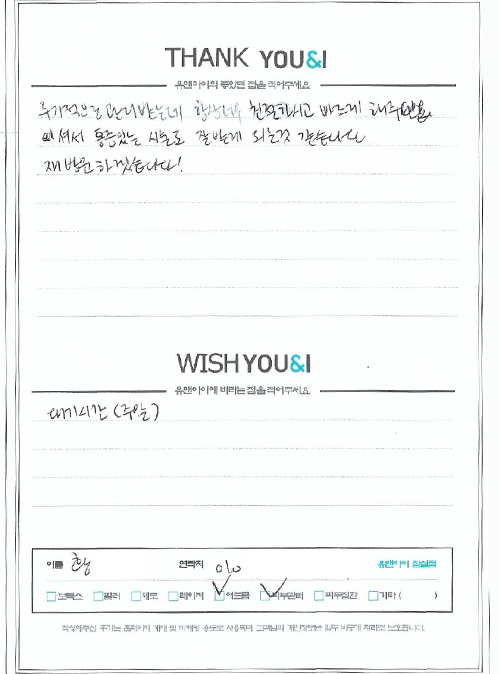 THANK YOU&I
유앤아이의 좋았던 점을 적어주세요
주기적으로 관리받는데 항상 친절하시고 빠르게 해주셔서
통증있는 시술도 잘 받게 되는것 같습니다
재방문 하겠습니다!
WISH YOU&I
유앤아이에 바라는 점을 적어주세요
대기시간 (주말)
이름 연락처 010 유앤아이 잠실점
보톡스 필러 제모 레이저 여드름 피부관리 기타 ( )